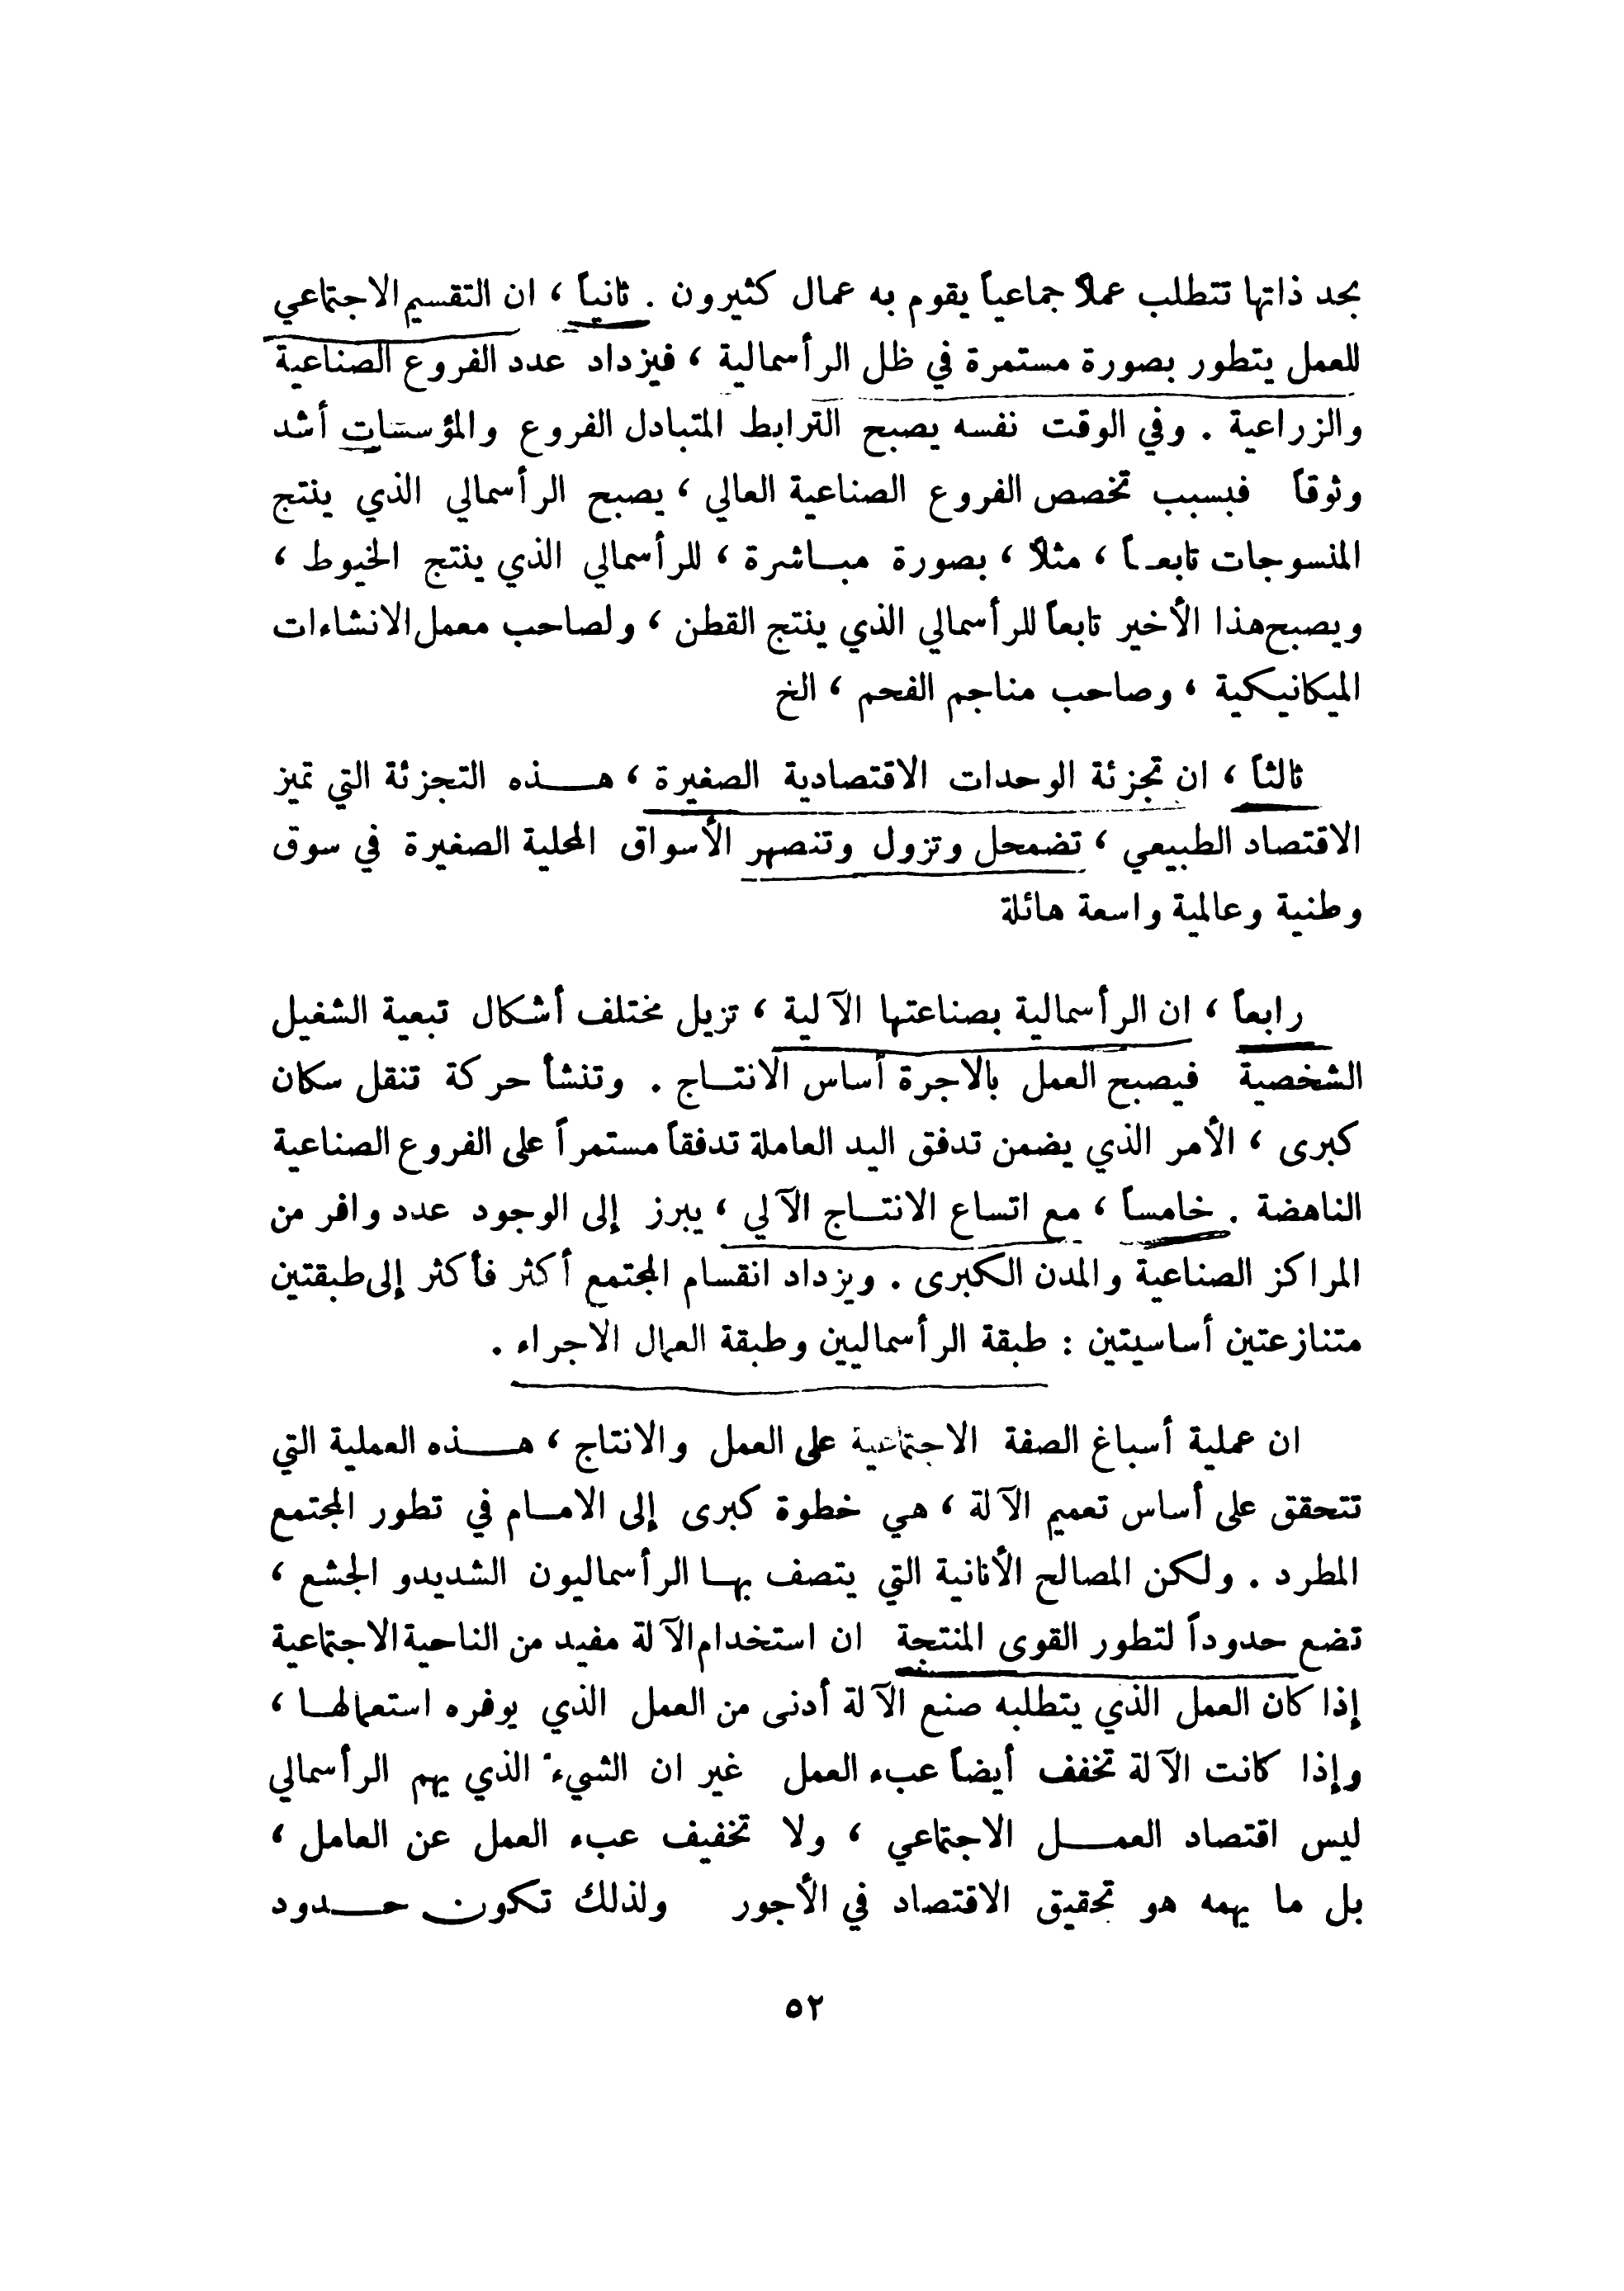 بحد ذاتها تتطلب عملاً جماعياً يقوم به عمال كثيرون . ثانياً ، ان التقسيم الاجتماعي
للعمل يتطور بصورة مستمرة في ظل الرأسمالية ، فيزداد عدد الفروع الصناعية
والزراعية . وفي الوقت نفسه يصبح الترابط المتبادل الفروع والمؤسسات أشد
وثوقاً فبسبب تخصص الفروع الصناعية العالي ، يصبح الرأسمالي الذي ينتج
المنسوجات تابعـاً ، مثلاً ، بصورة مبـاشرة ، للرأسمالي الذي ينتج الخيوط ،
ويصبح هذا الأخير تابعاً للرأسمالي الذي ينتج القطن ، ولصاحب معمل الانشاءات
الميكانيكية ، وصاحب مناجم الفحم ، الخ
ثالثاً ، ان تجزئة الوحدات الاقتصادية الصغيرة ، هـــذه التجزئة التي تميز
الاقتصاد الطبيعي ، تضمحل وتزول وتنصهر الأسواق المحلية الصغيرة في سوق
وطنية وعالمية واسعة هائلة
رابعاً ، ان الرأسمالية بصناعتها الآلية ، تزيل مختلف أشكال تبعية الشغيل
الشخصية فيصبح العمل بالاجرة أساس الانتـاج . وتنشأ حركة تنقل سكان
كبرى ، الأمر الذي يضمن تدفق اليد العاملة تدفقاً مستمراً على الفروع الصناعية
الناهضة . خامساً ، مع اتساع الانتـاج الآلي ، يبرز إلى الوجود عدد وافر من
المراكز الصناعية والمدن الكبرى . ويزداد انقسام المجتمع أكثر فأكثر إلى طبقتين
متنازعتين أساسيتين : طبقة الرأسماليين وطبقة العمال الاجراء .
ان عملية أسباغ الصفة الاجتماعية على العمل والانتاج ، هـــذه العملية التي
تتحقق على أساس تعميم الآلة ، هي خطوة كبرى إلى الامـام في تطور المجتمع
المطرد . ولكن المصالح الأنانية التي يتصف بهـا الرأسماليون الشديدو الجشع ،
تضع حدوداً لتطور القوى المنتجة ان استخدام الآلة مفيد من الناحية الاجتماعية
إذا كان العمل الذي يتطلبه صنع الآلة أدنى من العمل الذي يوفره استعمالهـا ،
وإذا كانت الآلة تخفف أيضاً عبء العمل غير ان الشيء الذي يهم الرأسمالي
ليس اقتصاد العمـــل الاجتماعي ، ولا تخفيف عبء العمل عن العامل ،
بل ما يهمه هو تحقيق الاقتصاد في الأجور ولذلك تكون حـــدود
٥٢